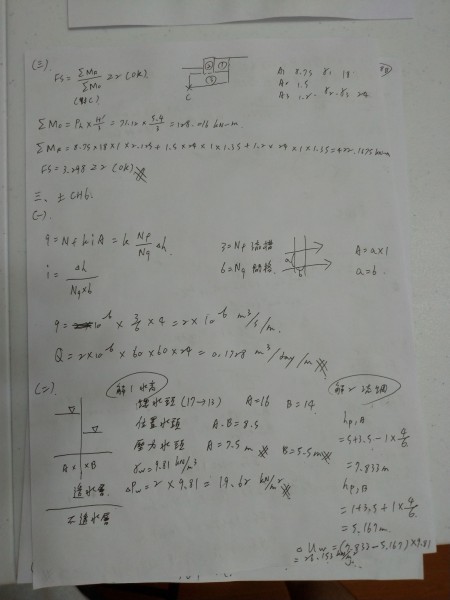 (三)
FS = ΣMr / ΣMo ≥ 2 (OK)
(對C)
② ①
③
C
A1 8.75 r1 18
A2 1.5
A3 1.2 r2, r3 24
ΣMo = Ph × H'/3 = 71.12 × 5.4/3 = 128.016 kN-m
ΣMr = 8.75×18×1×2.125 + 1.5×24×1×1.35 + 1.2×24×1×1.35 = 422.1675 kN-m
FS = 3.298 ≥ 2 (OK)
三、土CH6.
(一).
q = Nf k i A = k Nf/Nq Δh
3 = Nf 流槽
6 = Nq 間格
a
b
A = a×1
a = b.
i = Δh / Nq×b
q = 10^-6 × 3/6 × 4 = 2×10^-6 m³/s/m.
Q = 2×10^-6 × 60×60×24 = 0.1728 m³/day/m
(二)
解1 水高
總水頭 (17→13) A=16 B=14
位置水頭 A.B = 8.5
壓力水頭 A = 7.5 m B = 5.5 m
γw = 9.81 kN/m³
ΔPw = 2 × 9.81 = 19.62 kN/m²
A × × B
透水層
不透水層
解2 流網
hp,A
= 5+3.5-1×4/6
= 7.833 m
hp,B
= 1+3.5+1×4/6
= 5.167 m
Δ Uw = (7.833-5.167)×9.81
= 26.153